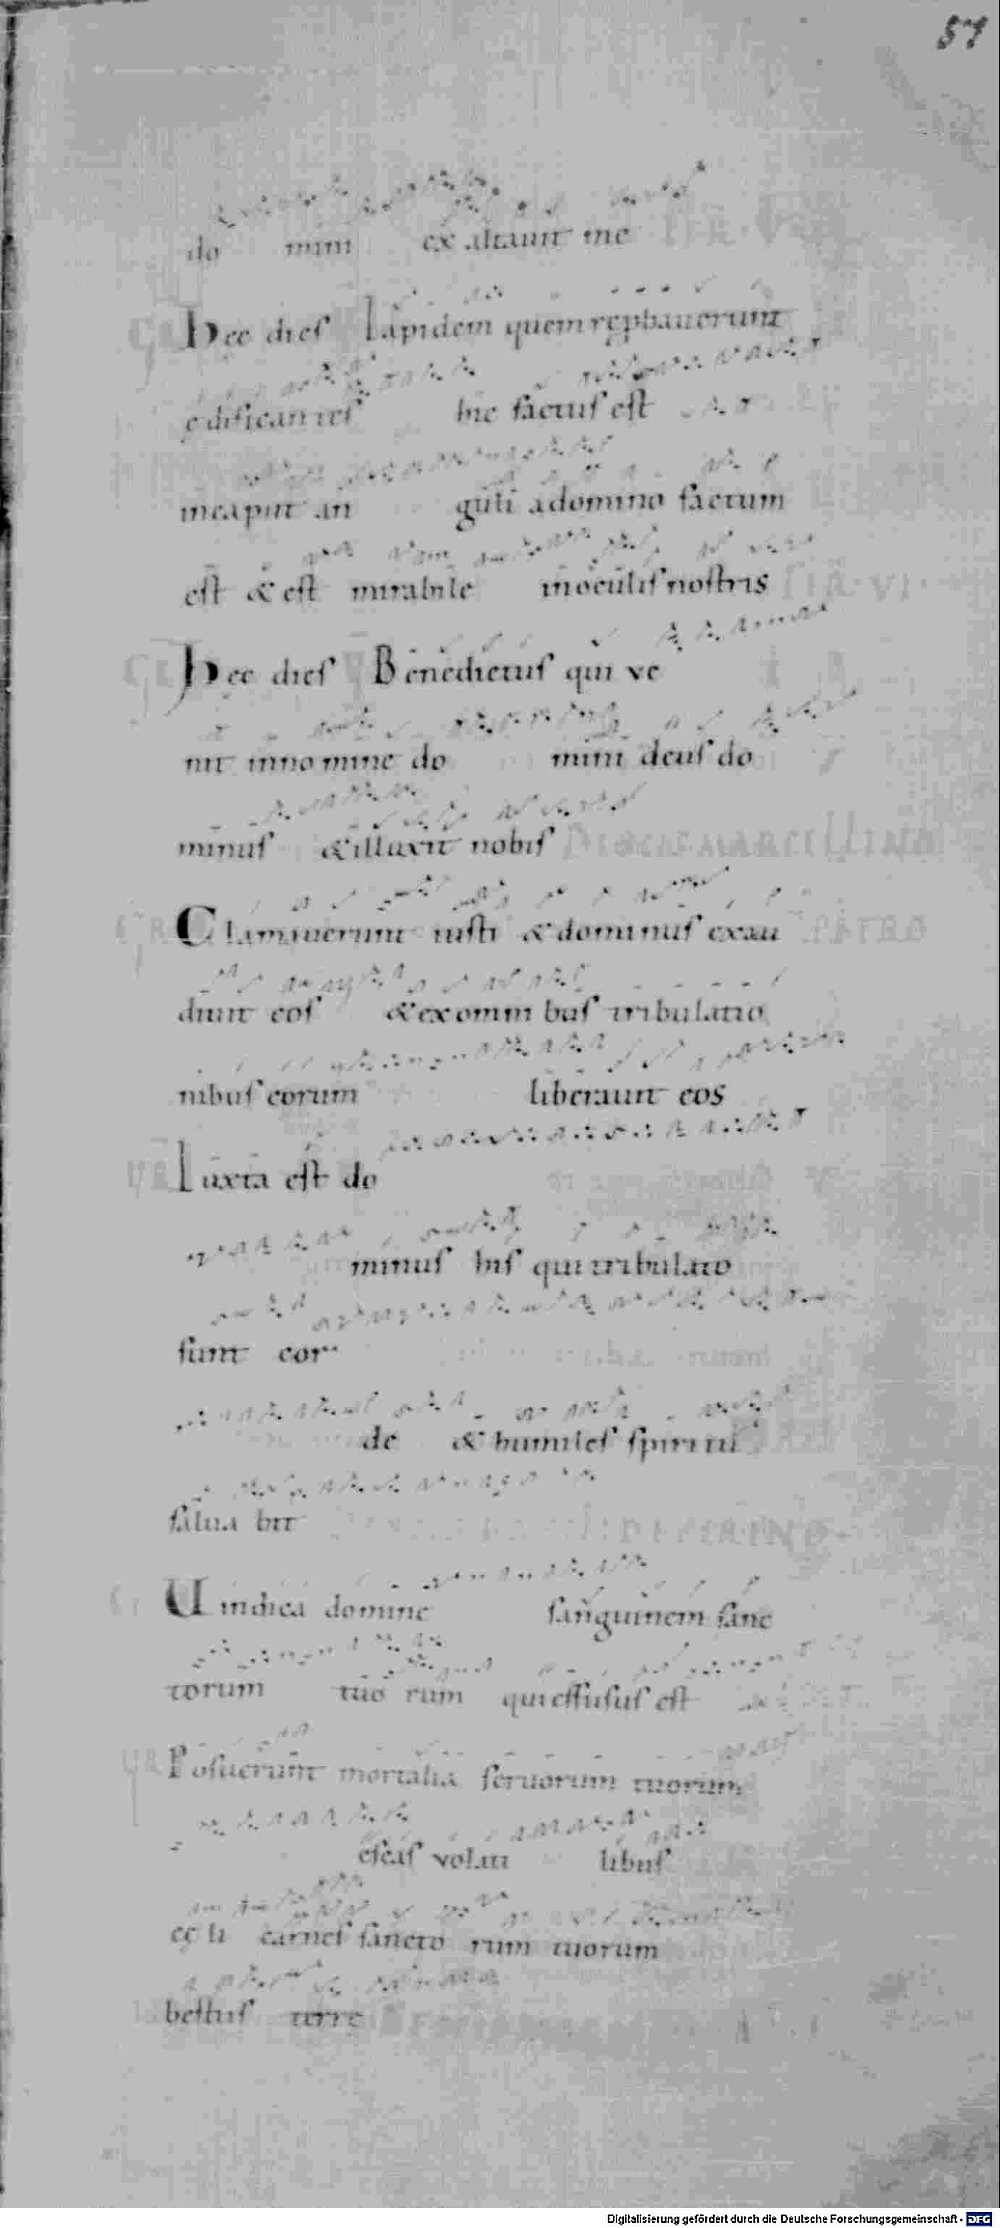 57
do mini exaltauit me
FER · V
GR Hec dies Lapidem quem reprobauerunt
ędificantes hic factus est
incaput an guli adomino factum
est & est mirabile inoculis nostris
FER · VI ·
GR Hec dies Benedictus qui ve
nit innomine do mini deus do
minus & illuxit nobis
MARCELLINO
GR Clamauerunt iusti & dominus exau
PETRO
diuit eos & exomni bus tribulatio
nibus eorum liberauit eos
VR Iuxta est do
minus his qui tribulato
sunt cor
de & humiles spiritu
salua bit
Uindica domine sanguinem sanc
torum tuo rum quieffusus est
VR Posuerunt mortalia seruorum tuorum
escas volati libus
cęli carnes sancto rum tuorum
bestiis terre
Digitalisierung gefördert durch die Deutsche Forschungsgemeinschaft - DFG